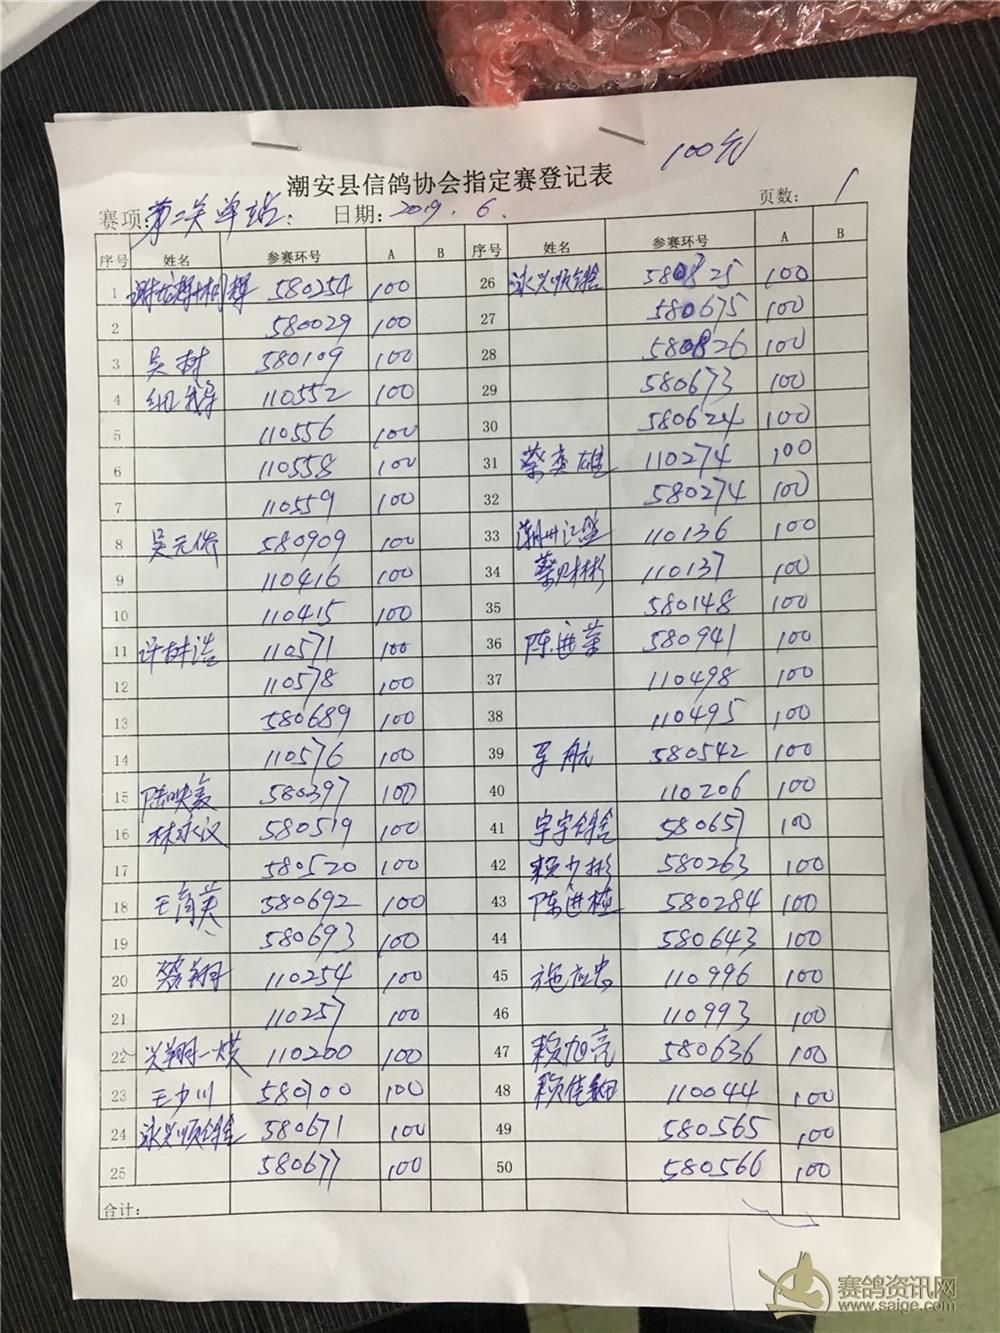 100元
潮安县信鸽协会指定赛登记表
赛项: 第二关单站. 日期: 2019.6. 页数: 1
序号 姓名 参赛环号 A B 序号 姓名 参赛环号 A B
1 580254 100 26 泳兴顺鸽舍 580825 100
2 580029 100 27 580675 100
3 吴树 580109 100 28 580826 100
4 110552 100 29 580673 100
5 110556 100 30 580624 100
6 110558 100 31 蔡杰雄 110274 100
7 110559 100 32 580274 100
8 吴元侨 580909 100 33 潮州汇盛 110136 100
9 110416 100 34 蔡财彬 110137 100
10 110415 100 35 580148 100
11 许树浩 110571 100 36 陈进荣 580941 100
12 110578 100 37 110498 100
13 580689 100 38 110495 100
14 110576 100 39 军航 580542 100
15 580397 100 40 110206 100
16 林永汉 580519 100 41 宇宇鸽舍 580657 100
17 580520 100 42 赖少彬 580263 100
18 王育英 580692 100 43 陈进植 580284 100
19 580693 100 44 580643 100
20 翔 110254 100 45 施应忠 110996 100
21 110257 100 46 110993 100
22 兴翔一 110200 100 47 赖旭亮 580636 100
23 王少川 580700 100 48 赖佳 110044 100
24 泳兴顺鸽舍 580671 100 49 580565 100
25 580677 100 50 580566 100
合计:
赛鸽资讯网
www.saige.com